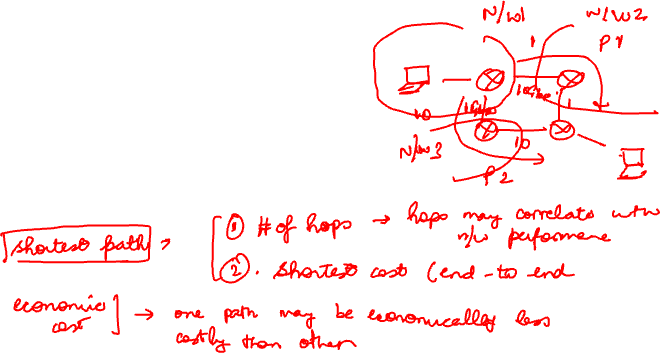 N/w1
N/W2
1
P1
1Gibs
1
10
N/W3
10
P2
shortest path
① # of hops → hops may correlate with
n/w performane
② . shortest cost (end-to end
economic
cost
→ one path may be economically less
costly than other